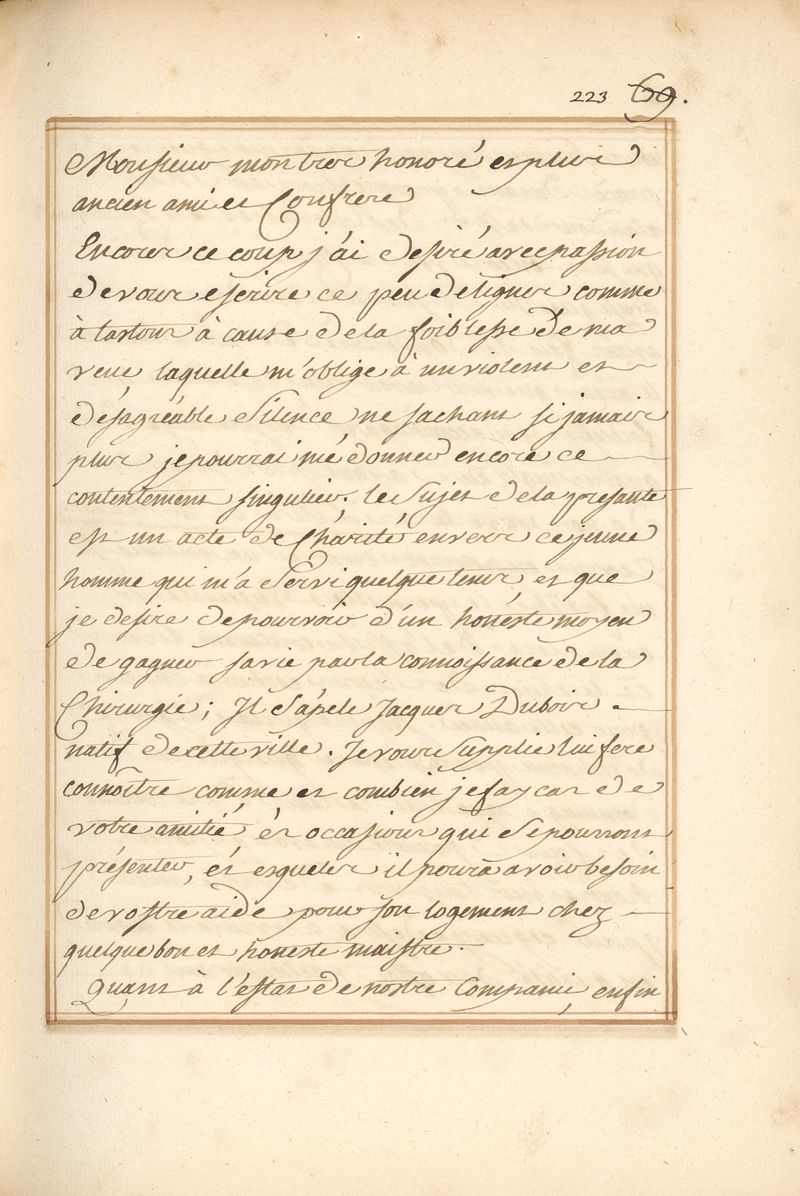 223 69.
Monsieur mon tres honoré et plus
ancien ami et Confrere
Encores ce coup j'ai desiré avec passion
de vous escrire ce peu de lignes comme
à tastons à cause de la foiblesse de ma
veue laquelle m'oblige à un violent et
désagréable silence ne sachant si jamais
plus je pourrai mé donner encore ce
contentement singulier. le sujet de la presante
est un acte de Chárité envers ce jeune
homme qui m'a servi quelque tems et que
je desire de pourvoir d'un honéste moyen
de gagner sa vie par la connoissance de la
Chirurgie; Il s'apéle Jacques Dubois
natif de cette ville. Je vous supplie lui fere
connoître comme et combien je fay cas de
votre amitié és occasions qui se pourront
présenter, és esqueles il poura avoir besoin
de vostre aide pour son logement chez
quelque bon et honeste maistre.
Quant à l'estat de nostre Companie, enfin